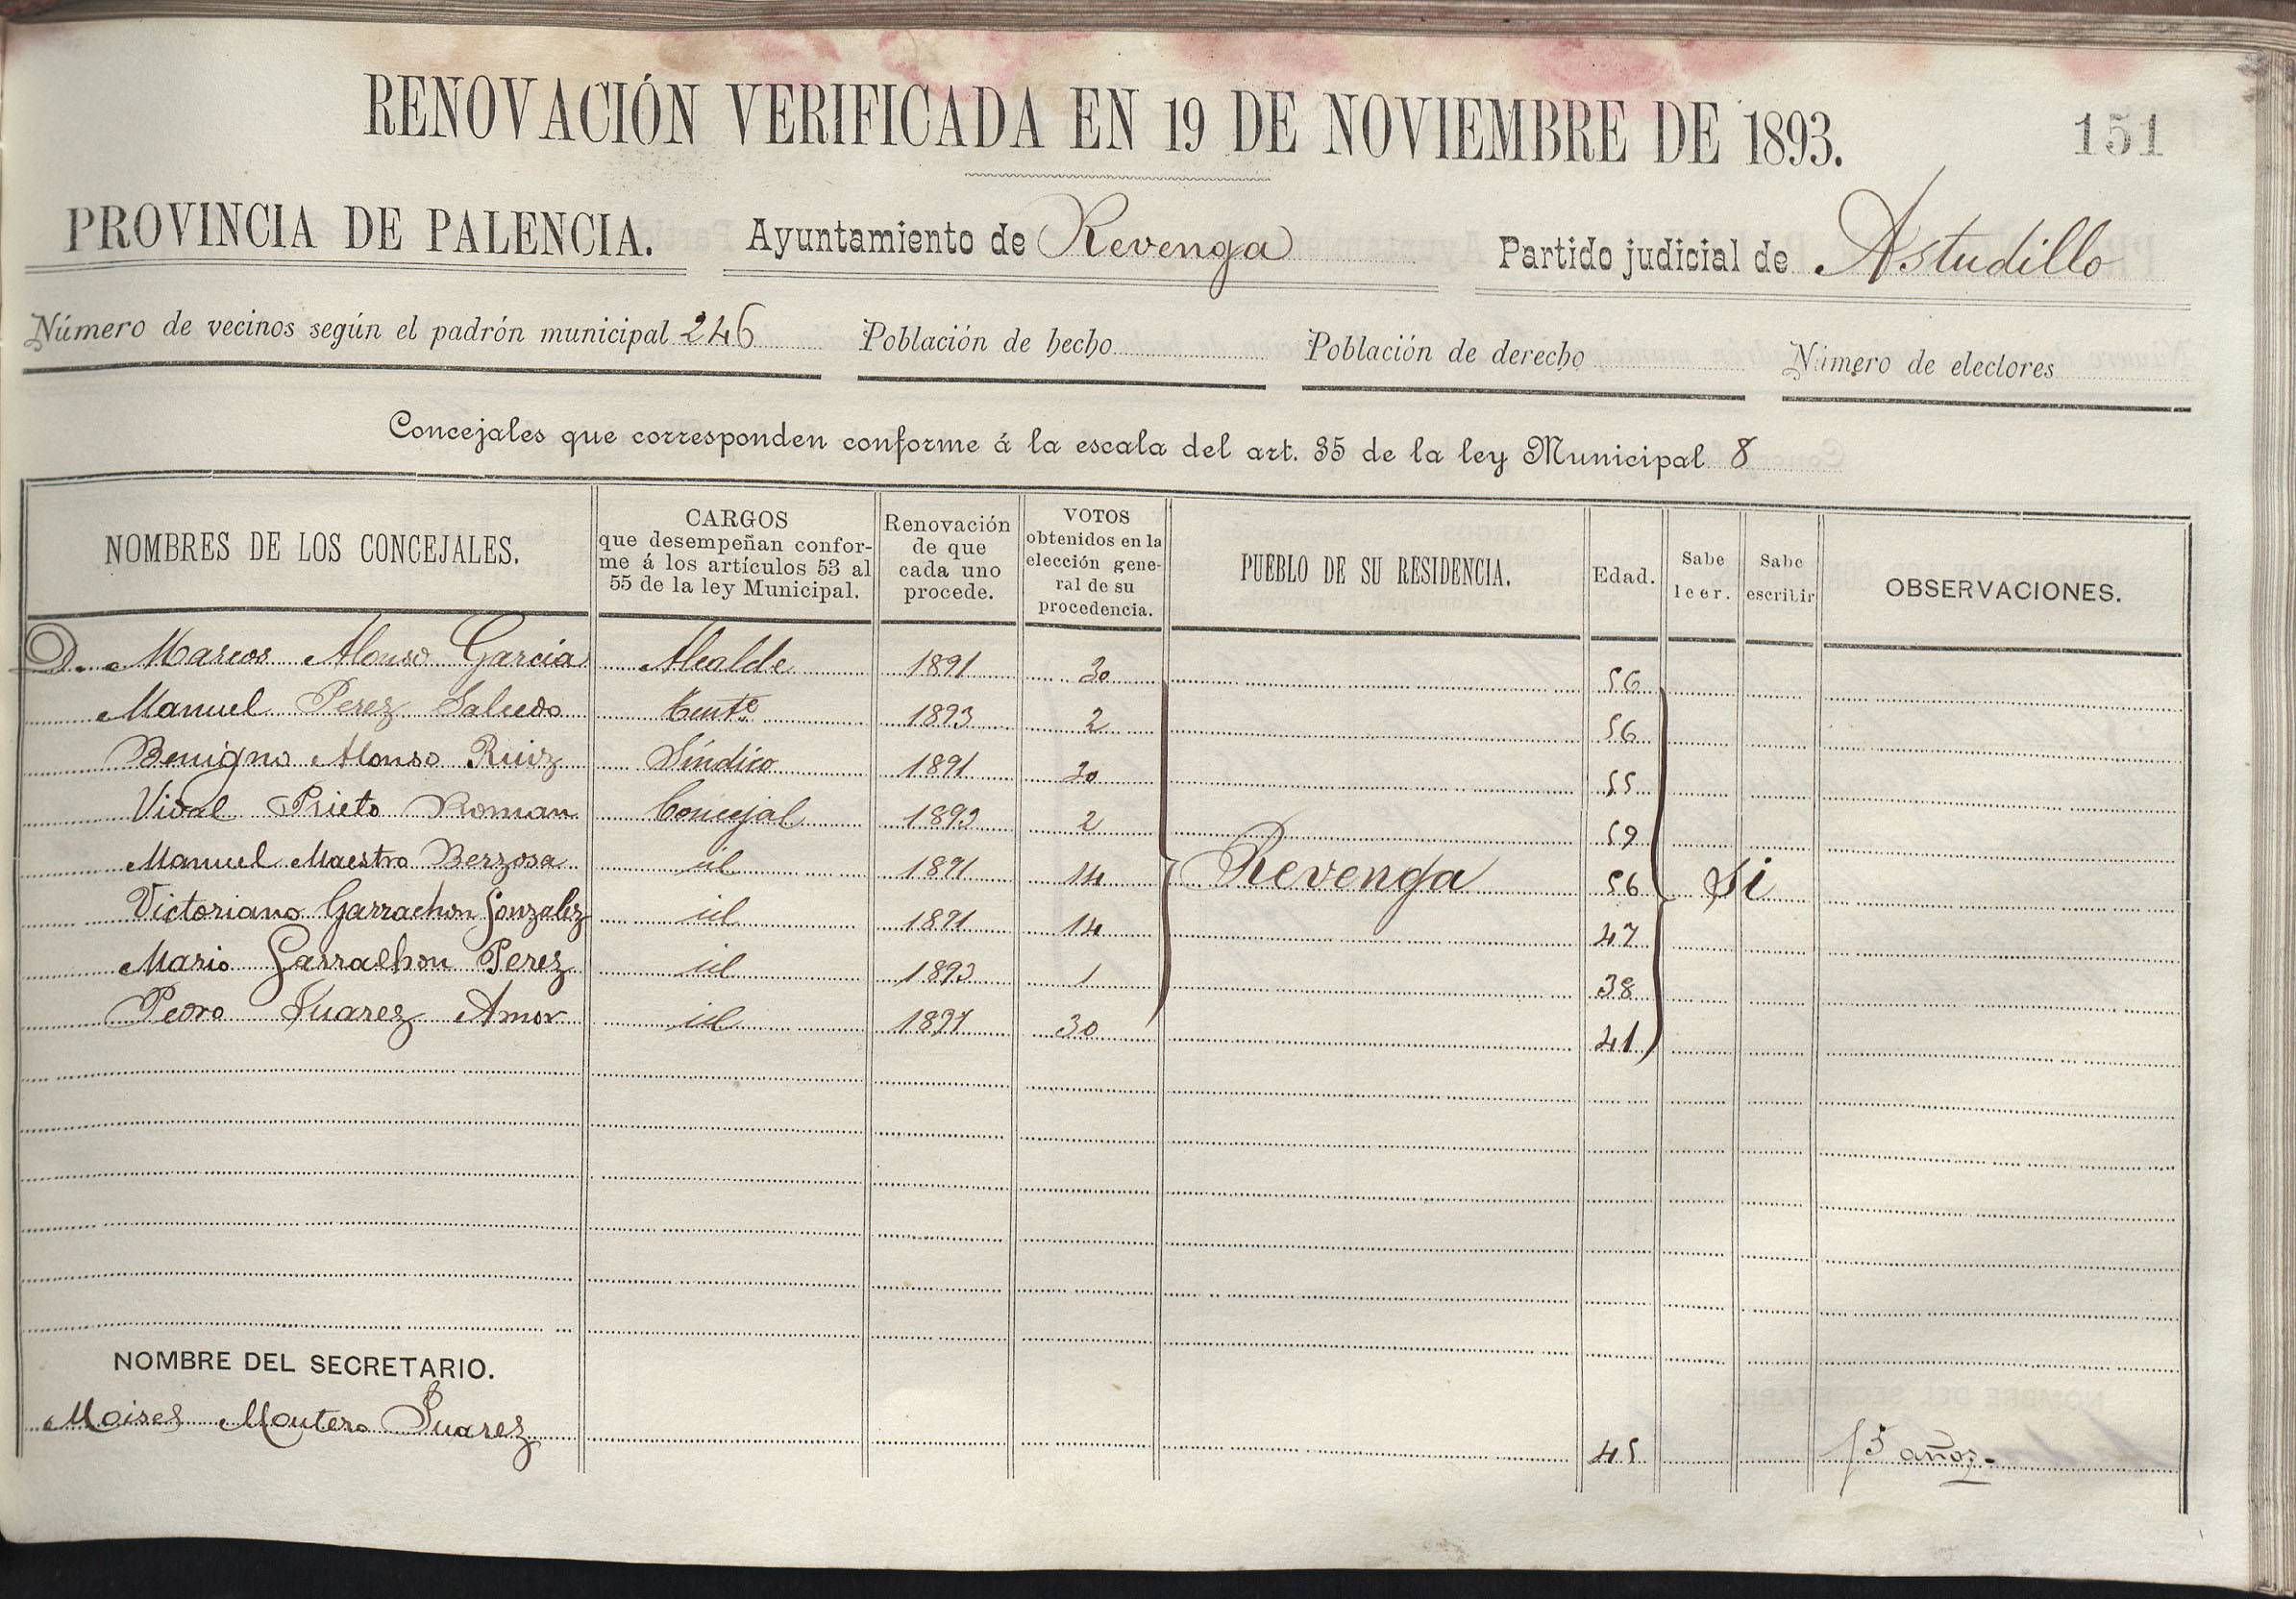 RENOVACIÓN VERIFICADA EN 19 DE NOVIEMBRE DE 1893.
151
PROVINCIA DE PALENCIA. Ayuntamiento de Revenga Partido judicial de Astudillo
Número de vecinos según el padrón municipal 246 Población de hecho Población de derecho Número de electores
Concejales que corresponden conforme á la escala del art. 35 de la ley Municipal 8
NOMBRES DE LOS CONCEJALES. CARGOS que desempeñan conforme á los artículos 53 al 55 de la ley Municipal. Renovación de que cada uno procede. VOTOS obtenidos en la elección general de su procedencia. PUEBLO DE SU RESIDENCIA. Edad. Sabe leer. Sabe escribir OBSERVACIONES.
D. Marcos Alonso Garcia Alcalde 1891 30 56
Manuel Perez Salcedo Tente 1893 2 56
Benigno Alonso Ruiz Síndico 1891 30 55
Vidal Prieto Roman Concejal 1893 2 59
Manuel Maestro Berzosa id 1891 14 Revenga 56 Si
Victoriano Garrachon Gonzalez id 1891 14 47
Mario Garrachon Perez id 1893 1 38
Pedro Juarez Amor id 1891 30 41
NOMBRE DEL SECRETARIO.
Moises Montero Juarez 45 15 años.